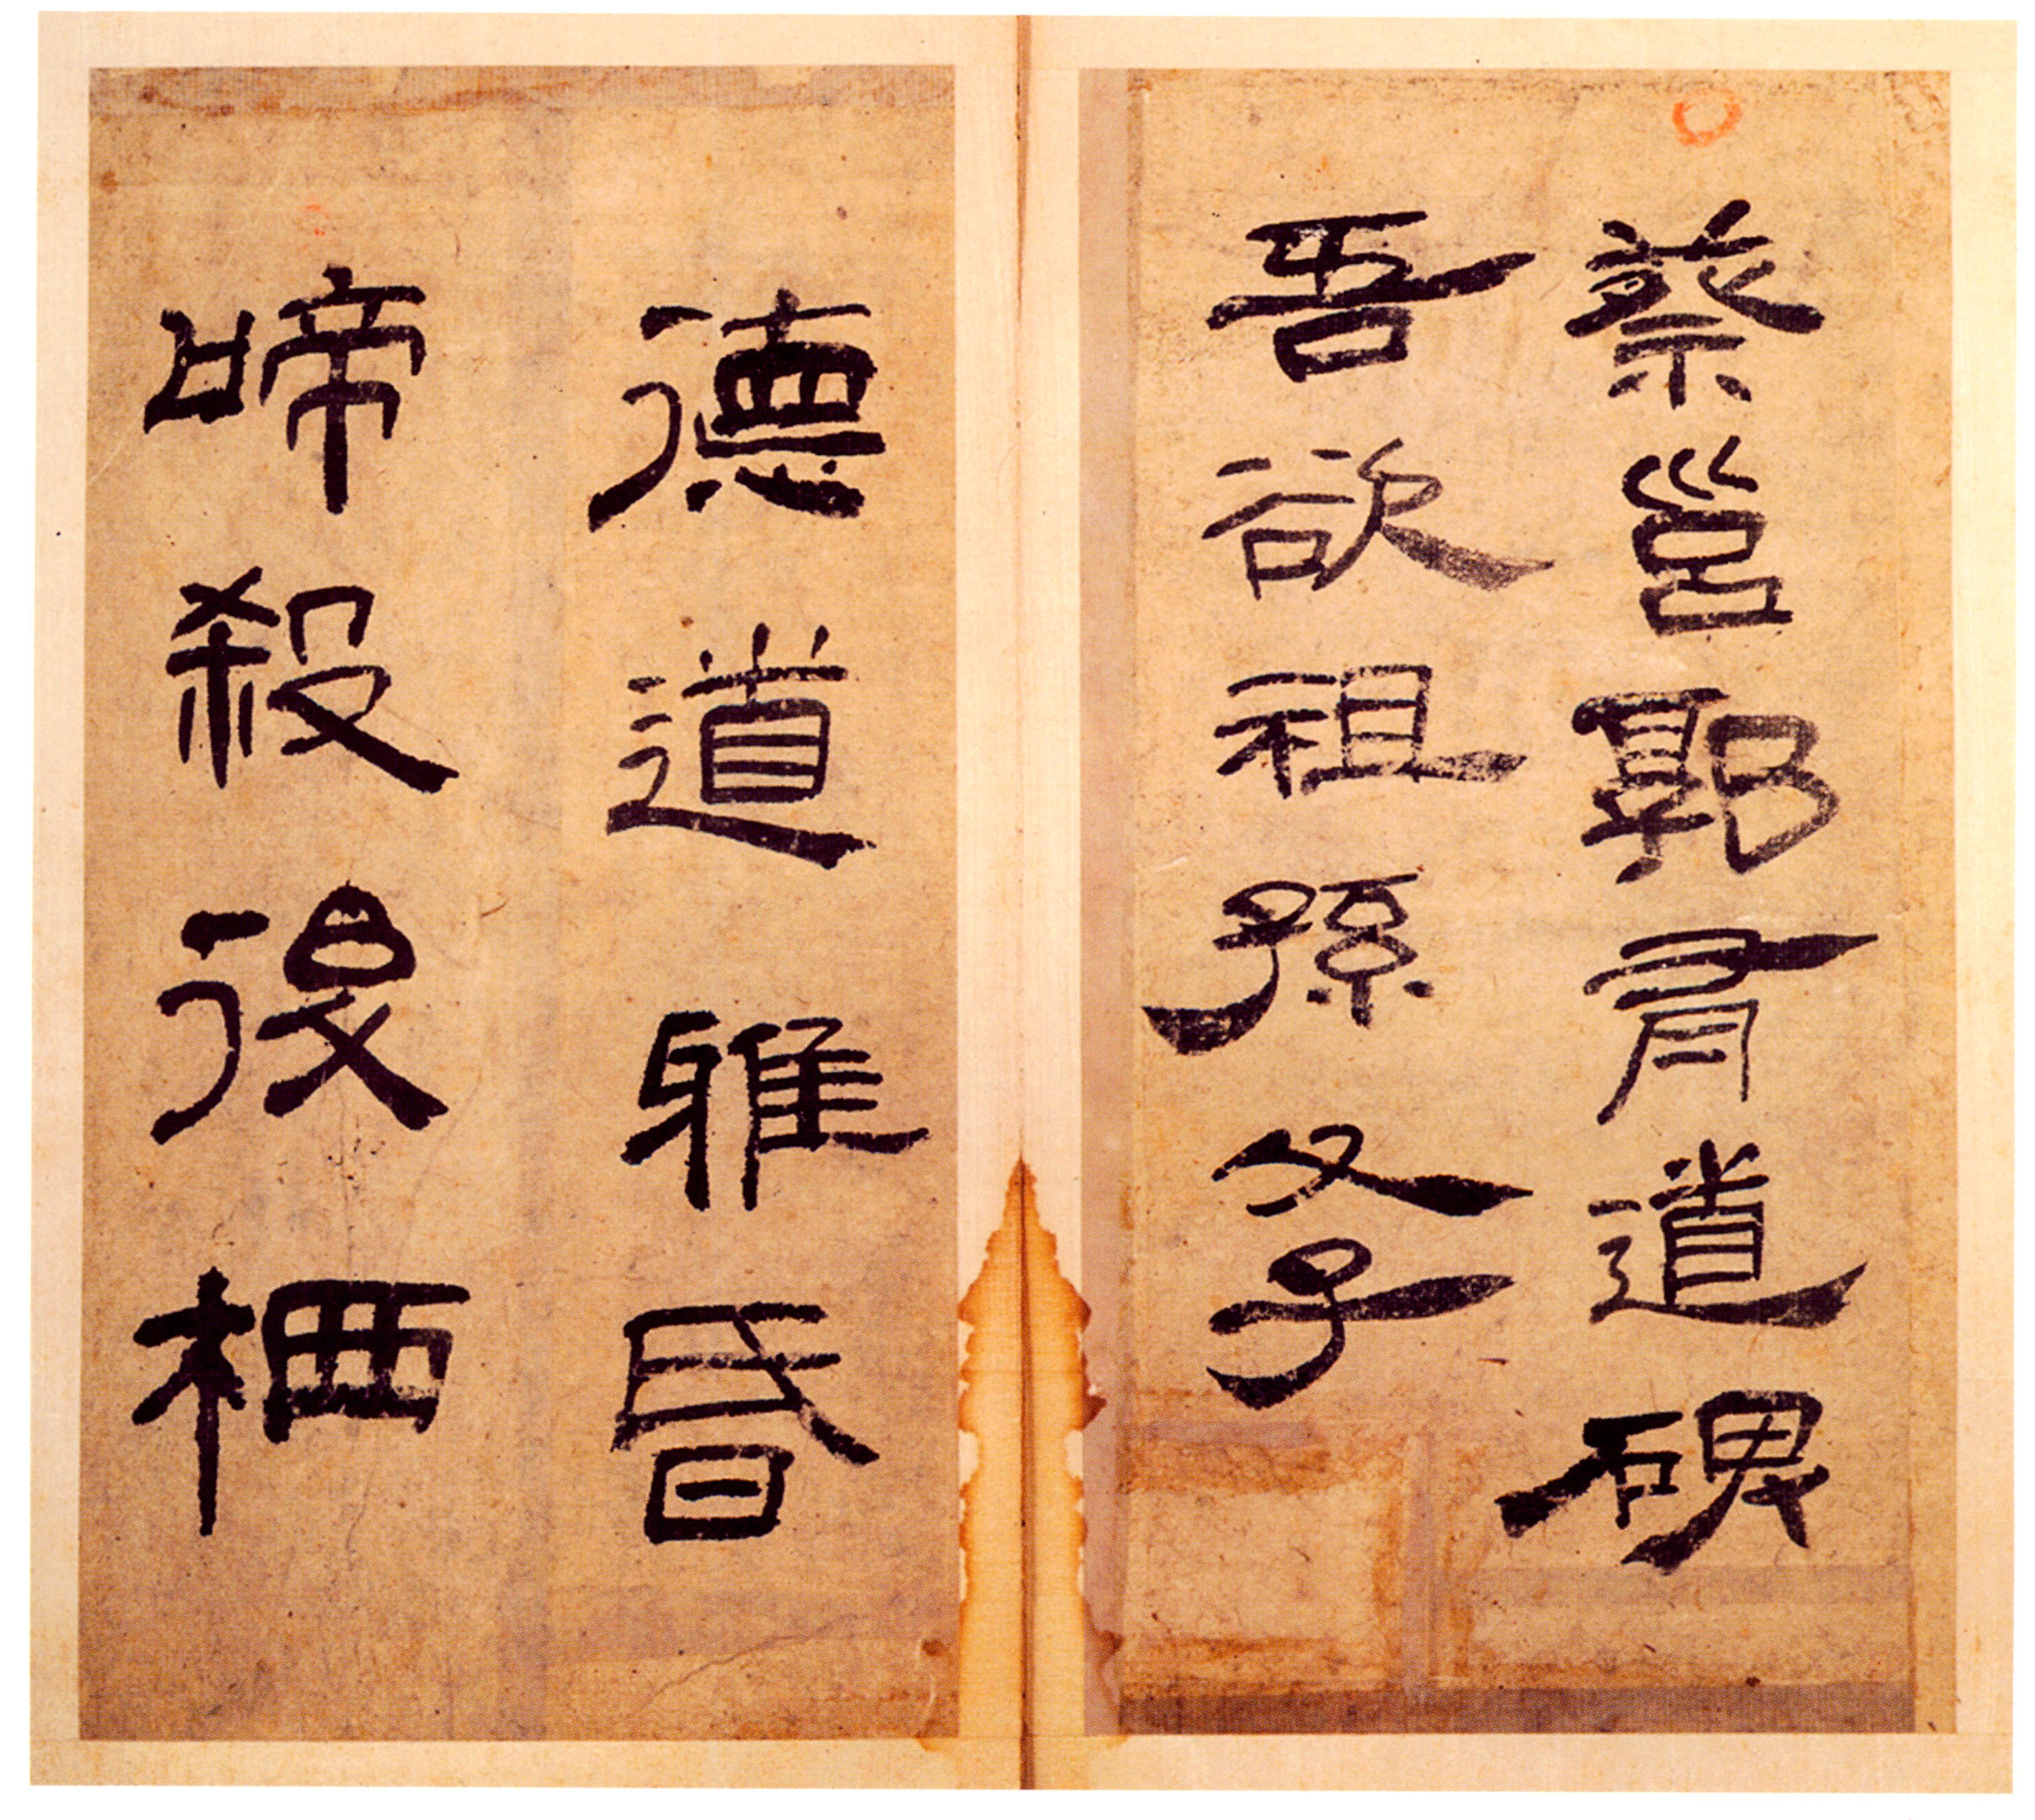 蔡邕郭有道碑
吾欲祖孫父子
德道雅昏
啼殺後栖